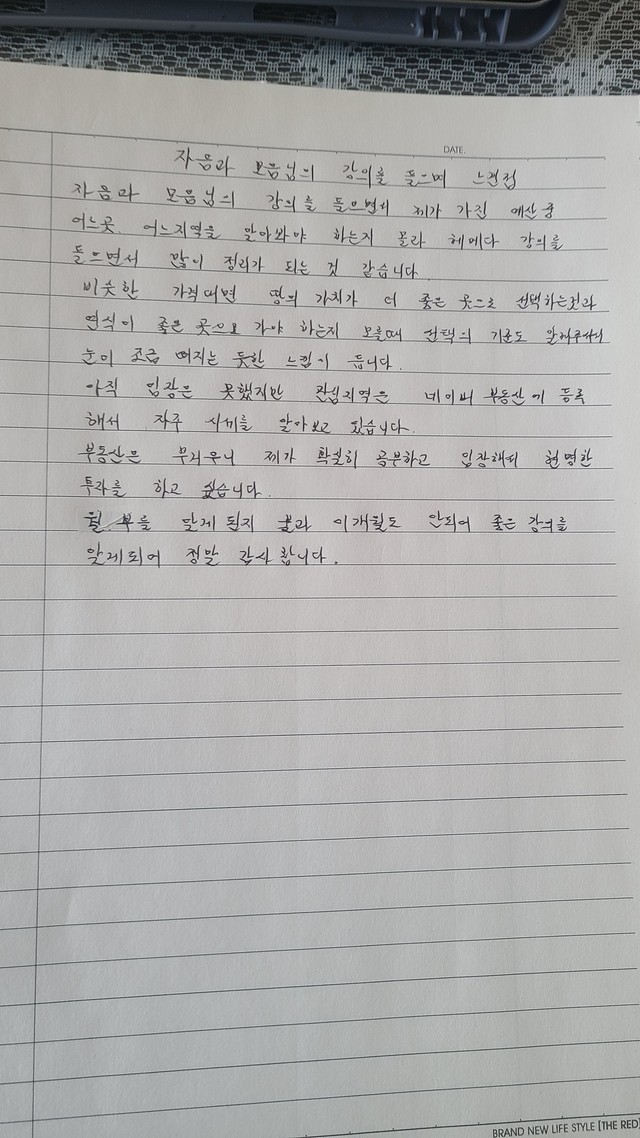 DATE.
자음과 모음님의 강의를 들으며 느낀점
자음과 모음님의 강의를 들으면서 제가 가진 예산 중
어느곳, 어느지역을 알아봐야 하는지 몰라 헤메다 강의를
들으면서 많이 정리가 되는 것 같습니다.
비슷한 가격대면 땅의 가치가 더 좋은 곳으로 선택하는것과
연식이 좋은 곳으로 가야 하는지 모를때 선택의 기준도 알려주셔서
눈이 조금 떠지는 듯한 느낌이 듭니다.
아직 임장은 못했지만 관심지역은 네이버 부동산에 등록
해서 자주 시세를 알아보고 있습니다.
부동산은 무거우니 제가 확실히 공부하고 임장해서 현명한
투자를 하고 싶습니다.
월.부를 알게 된지 불과 이개월도 안되어 좋은 강의를
알게되어 정말 감사 합니다.
BRAND NEW LIFE STYLE [THE RED